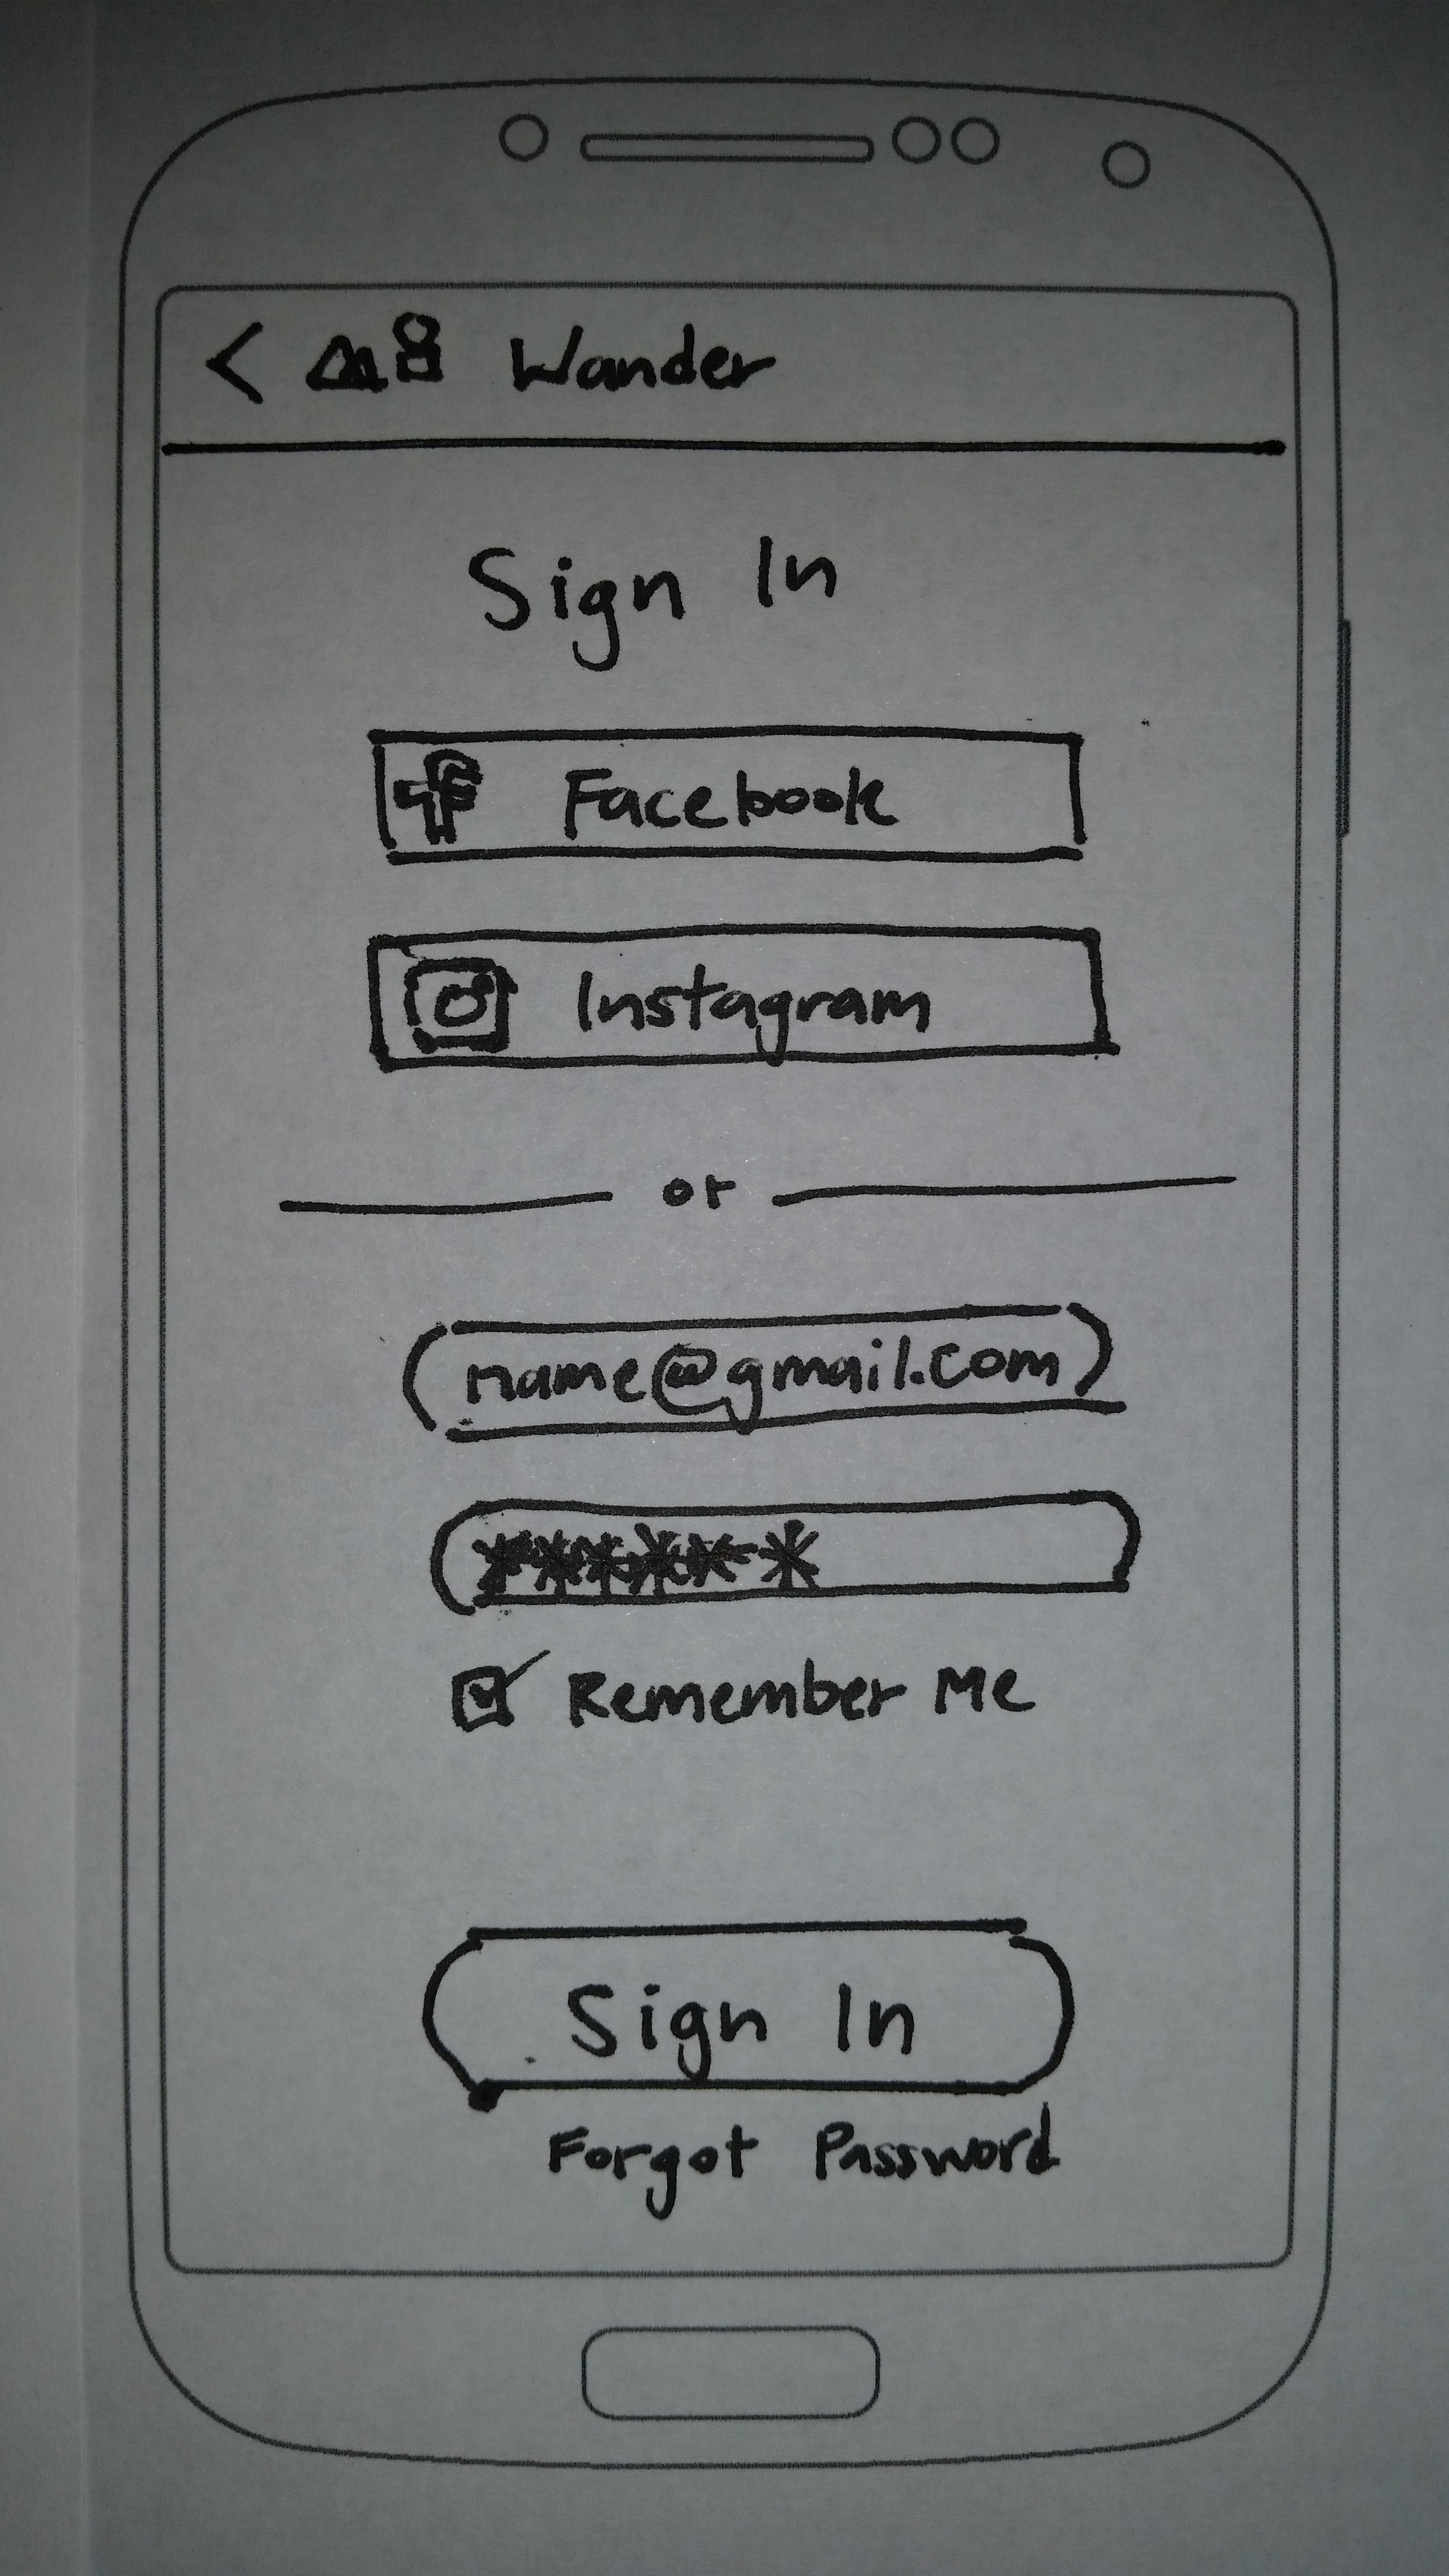 < Wander
Sign In
f Facebook
Instagram
or
name@gmail.com
******
Remember Me
Sign In
Forgot Password